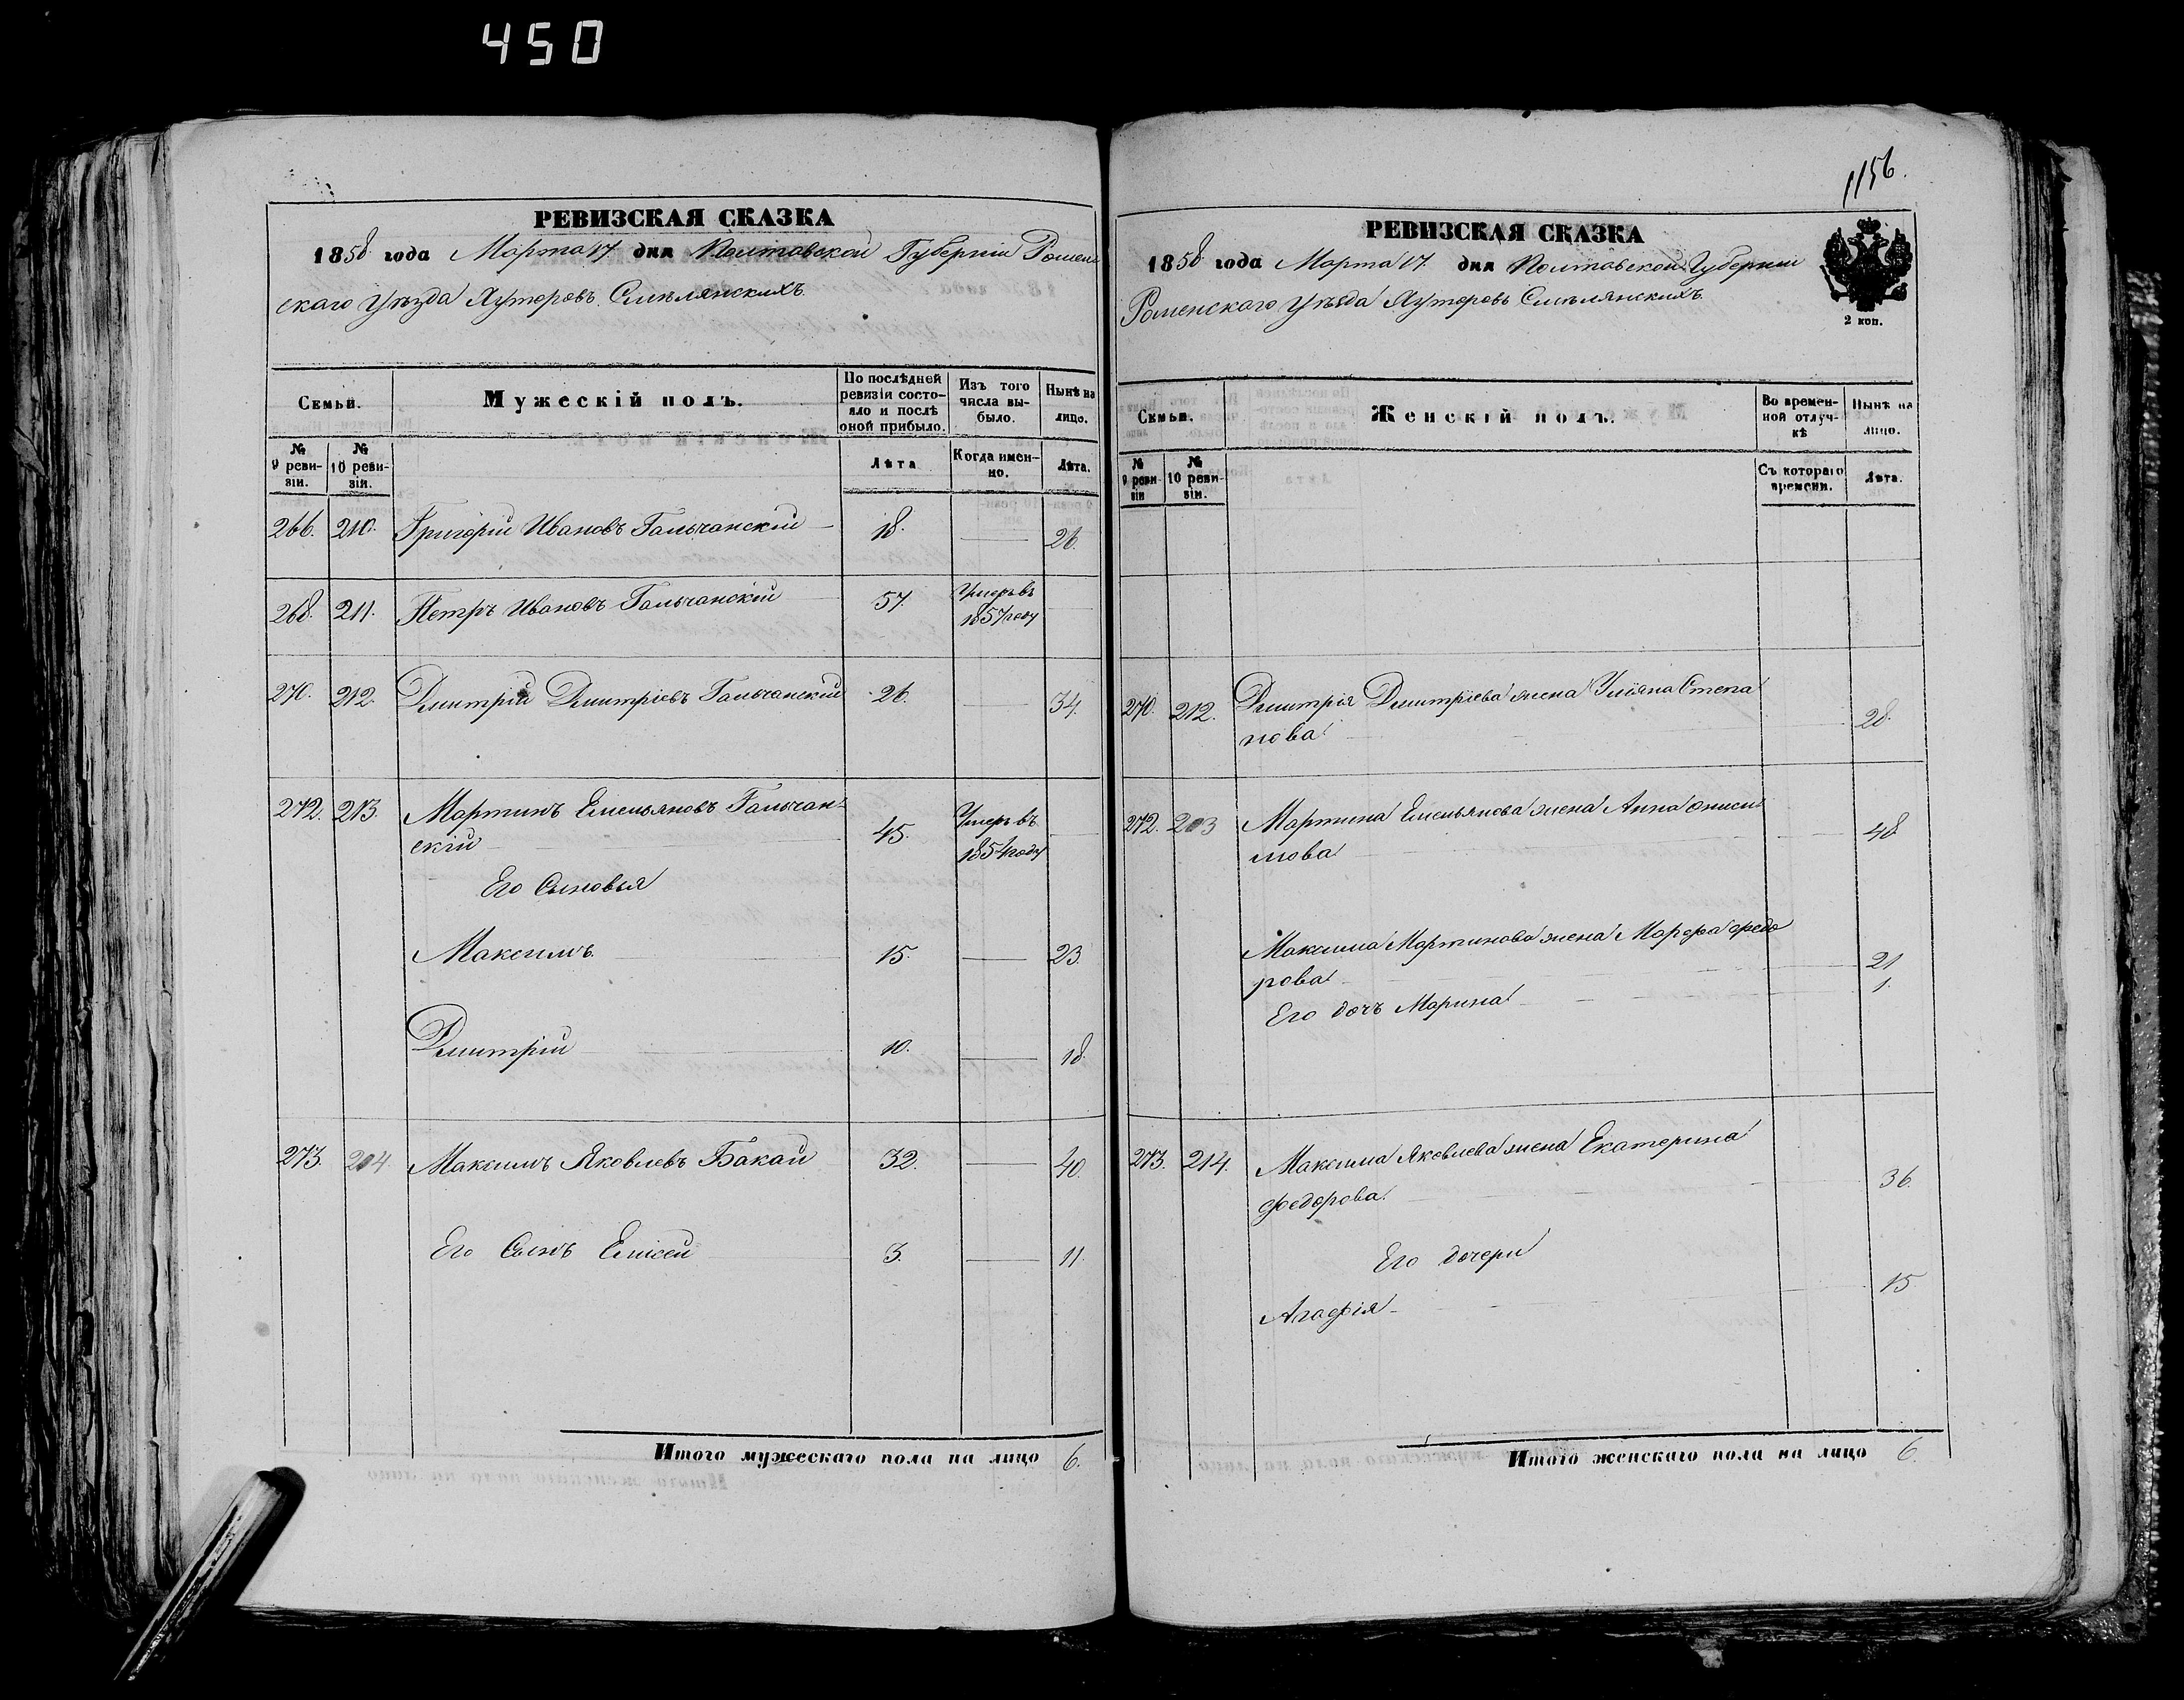 450
РЕВИЗСКАЯ СКАЗКА
1858 года Марта 17 дня Полтавской Губерніи Ромен
скаго Уѣзда Хуторовъ Смѣлянскихъ.
Семьи.
Мужескій полъ.
По послѣдней ревизіи состояло и послѣ оной прибыло.
Изъ того числа выбыло.
Нынѣ на лицо.
№ 9 ревизіи.
№ 10 ревизіи.
Лѣта
Когда именно.
Лѣта.
266. 210. Григорій Ивановъ Гальчанскій 18. — 26.
268. 211. Петръ Ивановъ Гальчанскій 57. Умеръ въ
1857 году
270. 212. Дмитрій Дмитріевъ Гальчанскій 26. — 34.
272. 213. Мартинъ Емельяновъ Гальчан-
скій 45. Умеръ въ
1854 году
Его Сыновья
Максимъ 15. — 23.
Дмитрій 10. — 18.
273. 214 Максимъ Яковлевъ Бакай 32. — 40.
Его Сынъ Елисей 3. — 11.
Итого мужескаго пола на лицо 6.
1156.
РЕВИЗСКАЯ СКАЗКА
1858 года Марта 17 дня Полтавской Губерніи
Роменскаго Уѣзда Хуторовъ Смѣлянскихъ.
2 коп.
Семьи.
Женскій полъ.
Во временной отлучкѣ
Нынѣ на лицо.
№ 9 ревизіи
№ 10 ревизіи.
Съ котораго времени.
Лѣта.
270. 212. Дмитрія Дмитріева жена Уліяна Степа
нова 28.
272. 213 Мартина Емельянова жена АннаОниси
мова 48
Максима Мартинова жена Марфа Федо
рова 21
Его дочь Марина 1.
273. 214. Максима Яковлева жена Екатерина
Федорова 36.
Его дочери
Агафія 15
Итого женскаго пола на лицо 6.